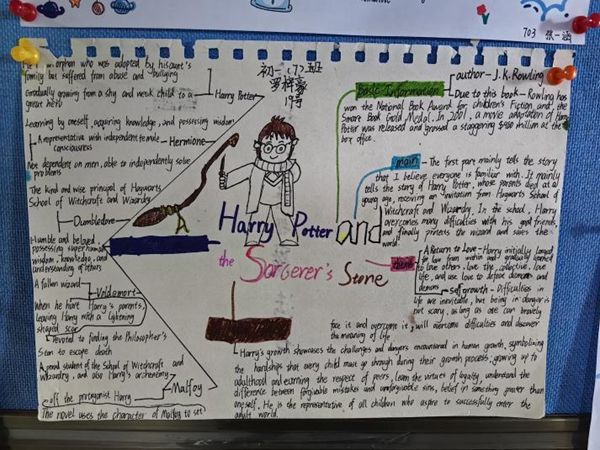 703 张一涵
初一(7)班
罗梓豪
19号
an orphan who was adopted by his aunt's
family but suffered from abuse and bullying
Gradually growing from a shy and weak child to a
great hero
Harry Potter
Learning by oneself, acquiring knowledge, and possessing wisdom
A representative with independent female
consciousness
Hermione
Not dependent on men, able to independently solve
problems
The kind and wise principal of Hogwarts
School of Witchcraft and Wizardry
Dumbledore
Humble and beloved
possessing superhuman
wisdom, knowledge, and
understanding of others
A fallen wizard
Voldemort
when he hurt Harry's parents,
leaving Harry with a lightening
shaped scar
Devoted to finding the Philosopher's
Stone to escape death
A proud student of the School of Witchcraft and
Wizardry, and also Harry's archenemy
Malfoy
Set off the protagonist Harry
The novel uses the character of Malfoy to set
Harry Potter and
the Sorcerer's Stone
Basic Information
author — J.K. Rowling
Due to this book — Rowling has
won the National Book Award for children's Fiction and the
Smare Book Gold Medal. In 2001, a movie adaptation of Harry
Potter was released and grossed a staggering $980 million at the
box office.
main — The first part mainly tells the story
that I believe everyone is familiar with. It mainly
tells the story of Harry Potter, whose parents died at a
young age, receiving an invitation from Hogwarts School of
Witchcraft and Wizardry. In the school, Harry
overcomes many difficulties with his good friends,
and finally protects the wizard and saves the
world.
A Return to Love — Harry initially longed
for love from within and gradually opened
to love others, love the collective, love
life, and use love to defeat demons and
demons.
self growth — Difficulties in
life are inevitable, but being in danger is
not scary, as long as one can bravely
face it and overcome it, will overcome difficulties and discover
the meaning of life.
Harry's growth showcases the challenges and dangers encountered in human growth, symbolizing
the hardships that every child must go through during their growth process, growing up to
adulthood and earning the respect of peers, learn the virtues of equity, understand the
difference between forgivable mistakes and unforgivable sins, belief in something greater than
oneself. He is the representative of all children who aspire to successfully enter the
adult world.